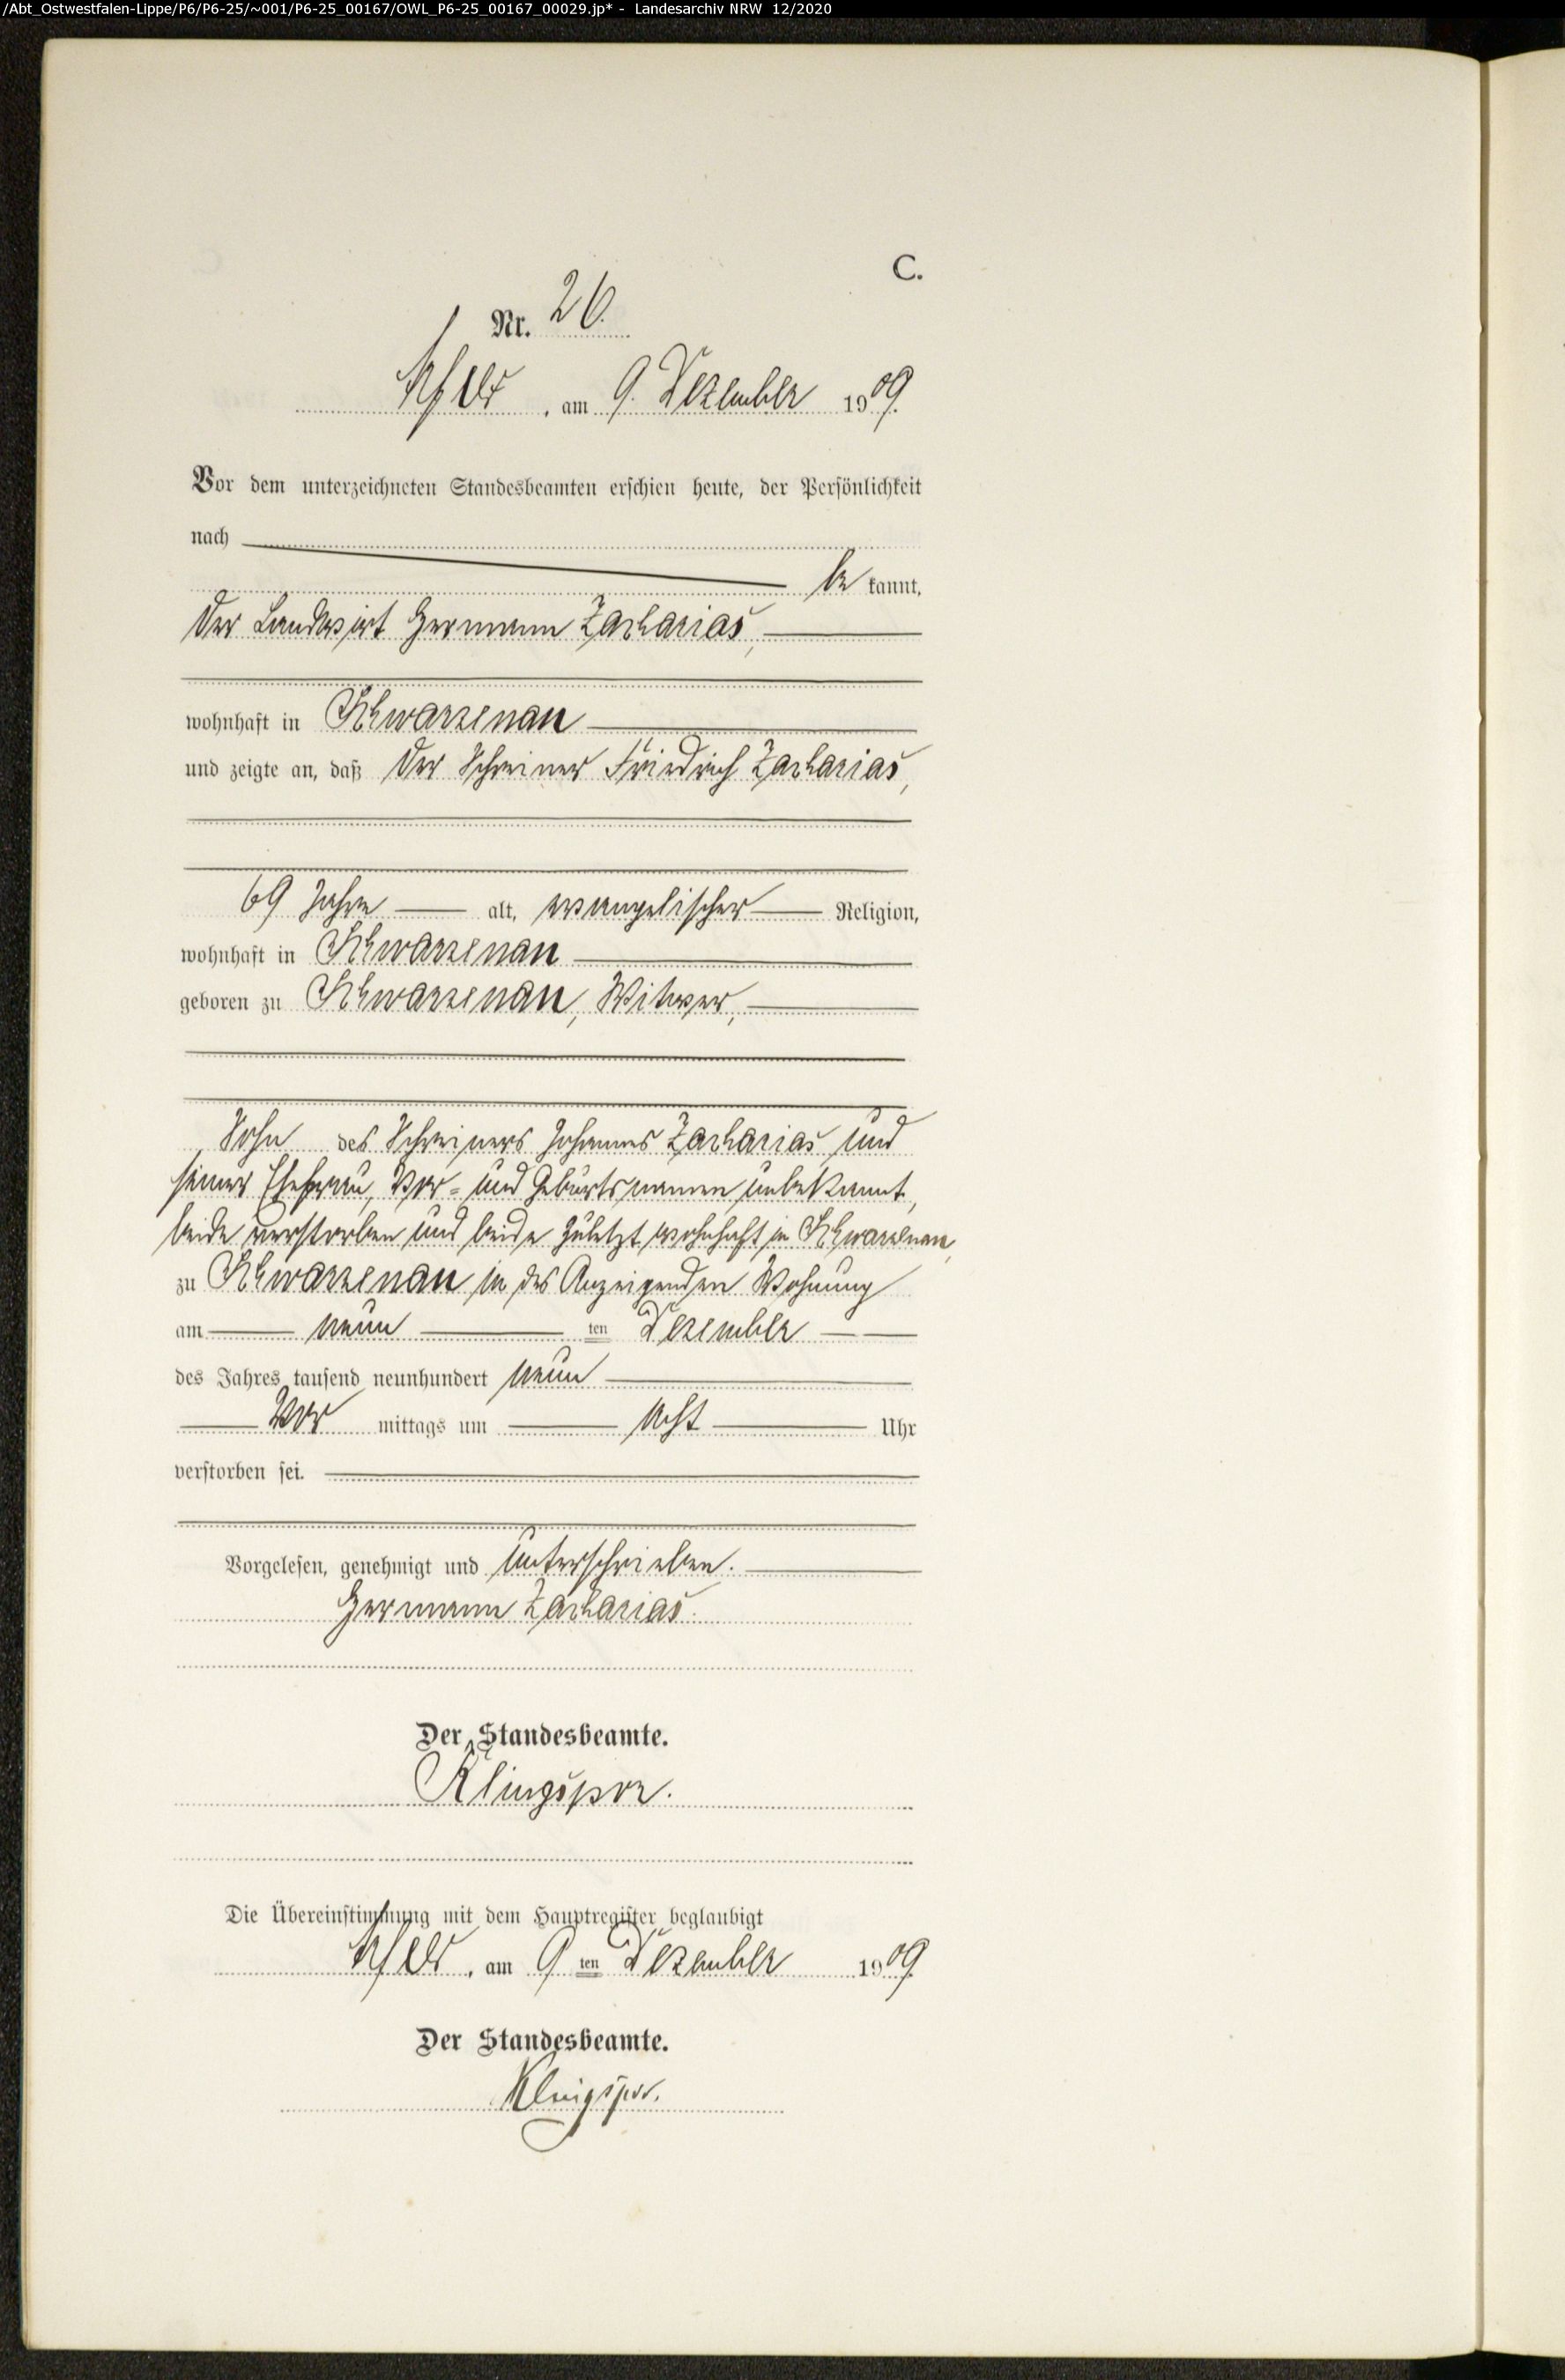 /Abt_Ostwestfalen-Lippe/P6/P6-25/~001/P6-25_00167/OWL_P6-25_00167_00029.jp* - Landesarchiv NRW 12/2020
C.
Nr. 26.
Arfeld, am 9. Dezember 1909.
Vor dem unterzeichneten Standesbeamten erschien heute, der Persönlichkeit
nach
be kannt,
der Landwirt Hermann Zacharias,
wohnhaft in Schwarzenau
und zeigte an, daß der Schreiner Friedrich Zacharias,
69 Jahre alt, evangelischer Religion,
wohnhaft in Schwarzenau
geboren zu Schwarzenau, Witwer,
Sohn des Schreiners Johannes Zacharias und
seiner Ehefrau, Vor- und Geburtsnamen unbekannt,
beide verstorben und beide zuletzt wohnhaft in Schwarzenau,
zu Schwarzenau in des Anzeigenden Wohnung
am neun ten Dezember
des Jahres tausend neunhundert neun
Vor mittags um acht Uhr
verstorben sei.
Vorgelesen, genehmigt und unterschrieben.
Hermann Zacharias.
Der Standesbeamte.
Klingspor.
Die Übereinstimmung mit dem Hauptregister beglaubigt
Arfeld, am 9 ten Dezember 1909.
Der Standesbeamte.
Klingspor.